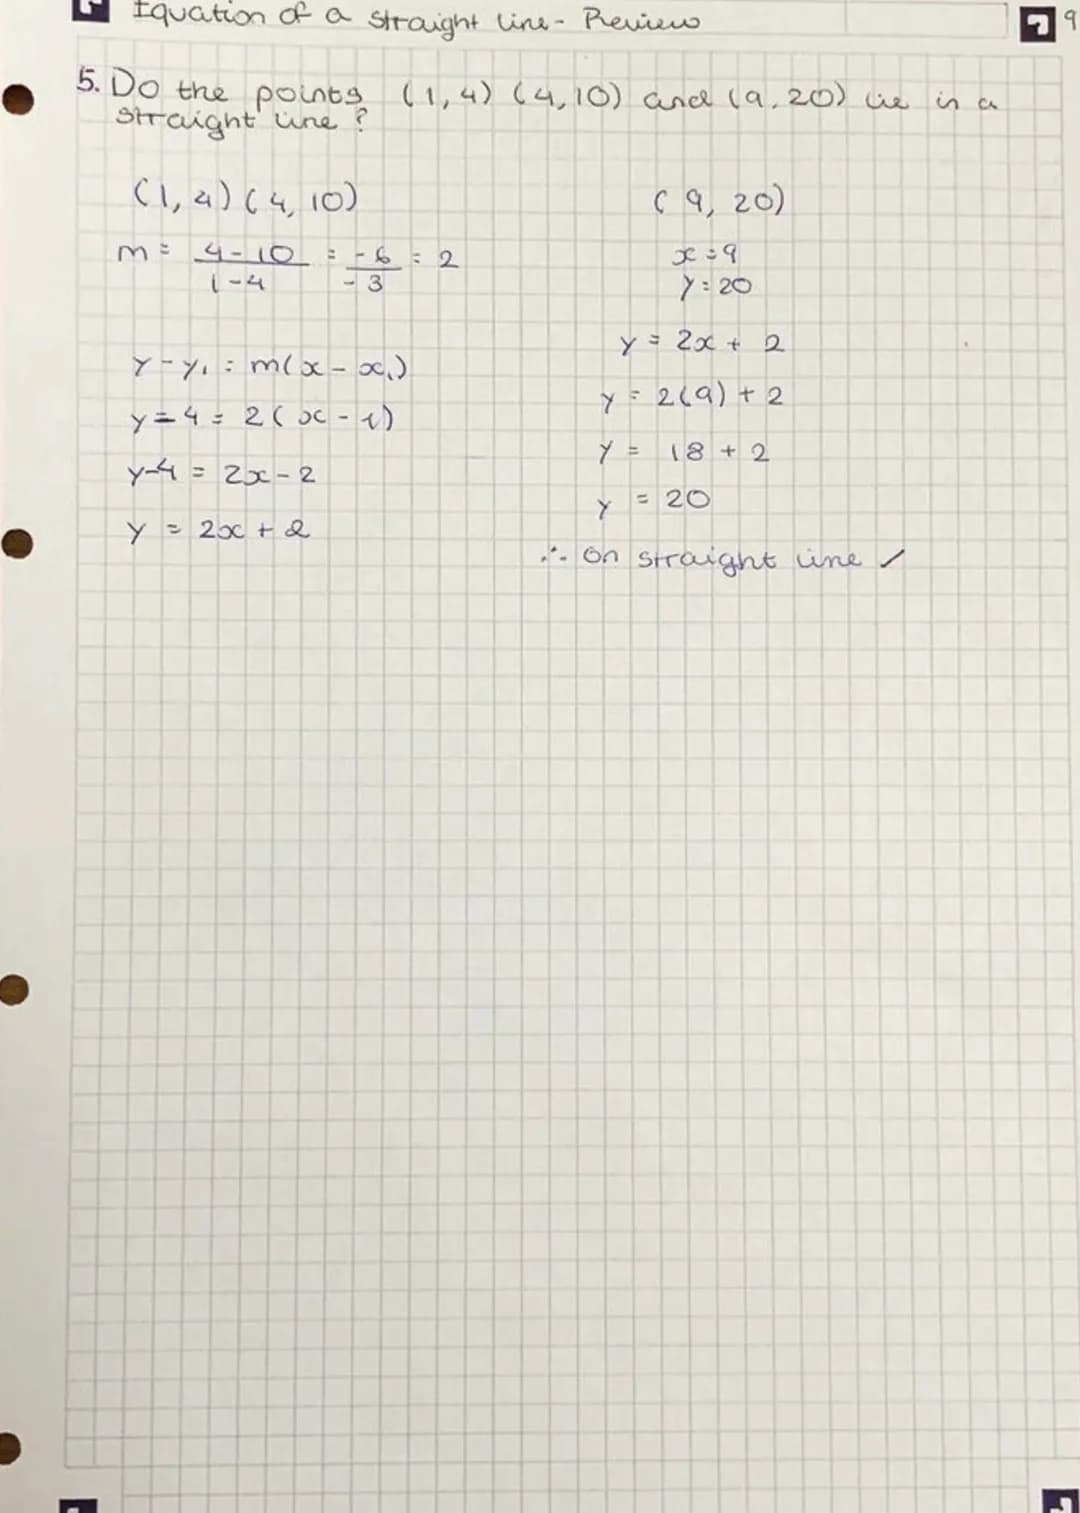 Equation of a straight line - Preview
9
5. Do the points (1,4) (4,10) and (9,20) lie in a
straight line ?
(1,4) (4,10)
m = 4-10 / 1-4 = -6 / -3 = 2
y - y₁ = m(x - x₁)
y - 4 = 2(x - 1)
y-4 = 2x - 2
y = 2x + 2
(9, 20)
x = 9
y = 20
y = 2x + 2
y = 2(9) + 2
y = 18 + 2
y = 20
∴ on straight line ✓